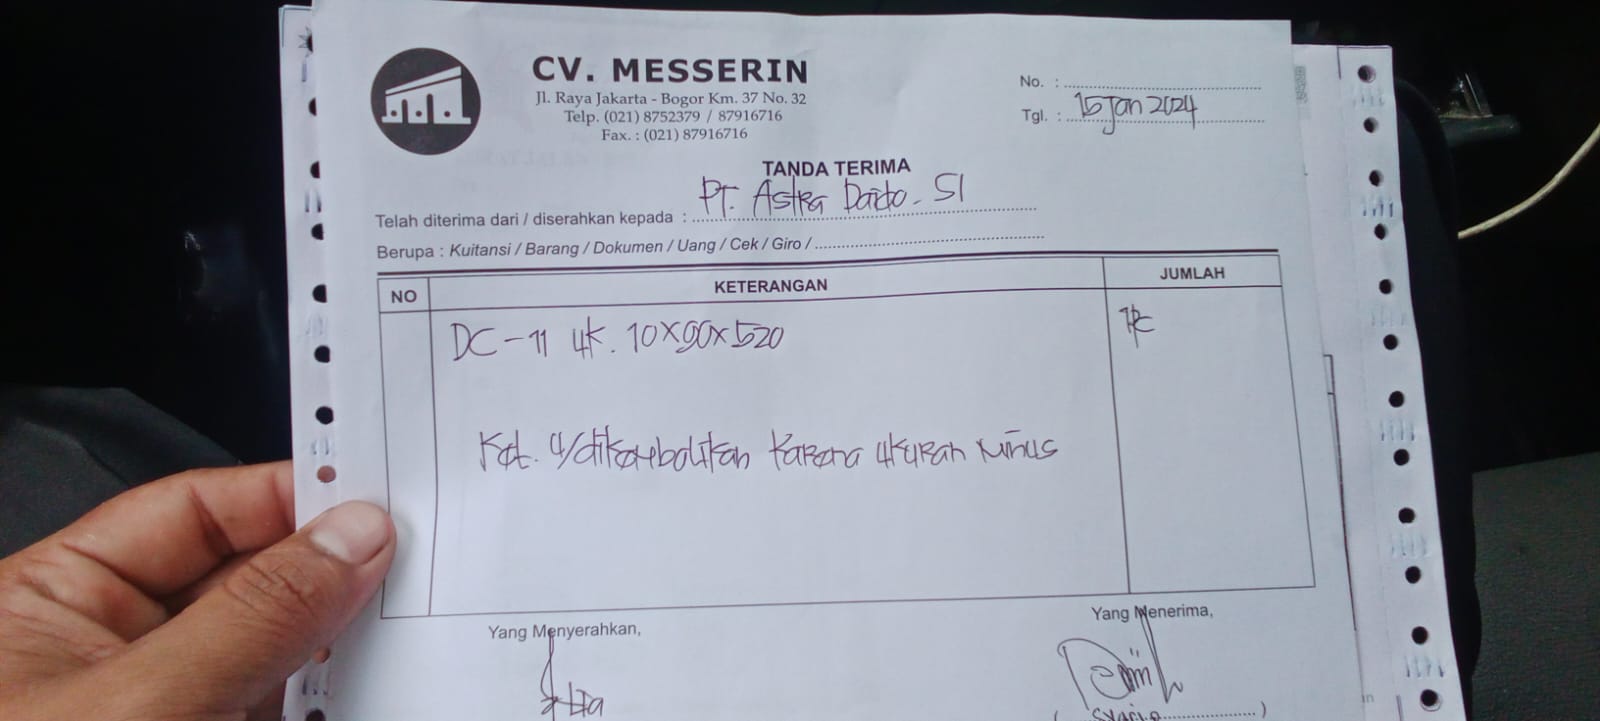 CV. MESSERIN
Jl. Raya Jakarta - Bogor Km. 37 No. 32
Telp. (021) 8752379 / 87916716
Fax. : (021) 87916716
No. :
Tgl. : 15 Jan 2024
TANDA TERIMA
Telah diterima dari / diserahkan kepada : PT. Astra Daido. SI
Berupa : Kuitansi / Barang / Dokumen / Uang / Cek / Giro /
NO KETERANGAN JUMLAH
DC-11 uk. 10x90x520 1PC
Ket. u/dikembalikan karena ukuran minus
Yang Menyerahkan, Yang Menerima,